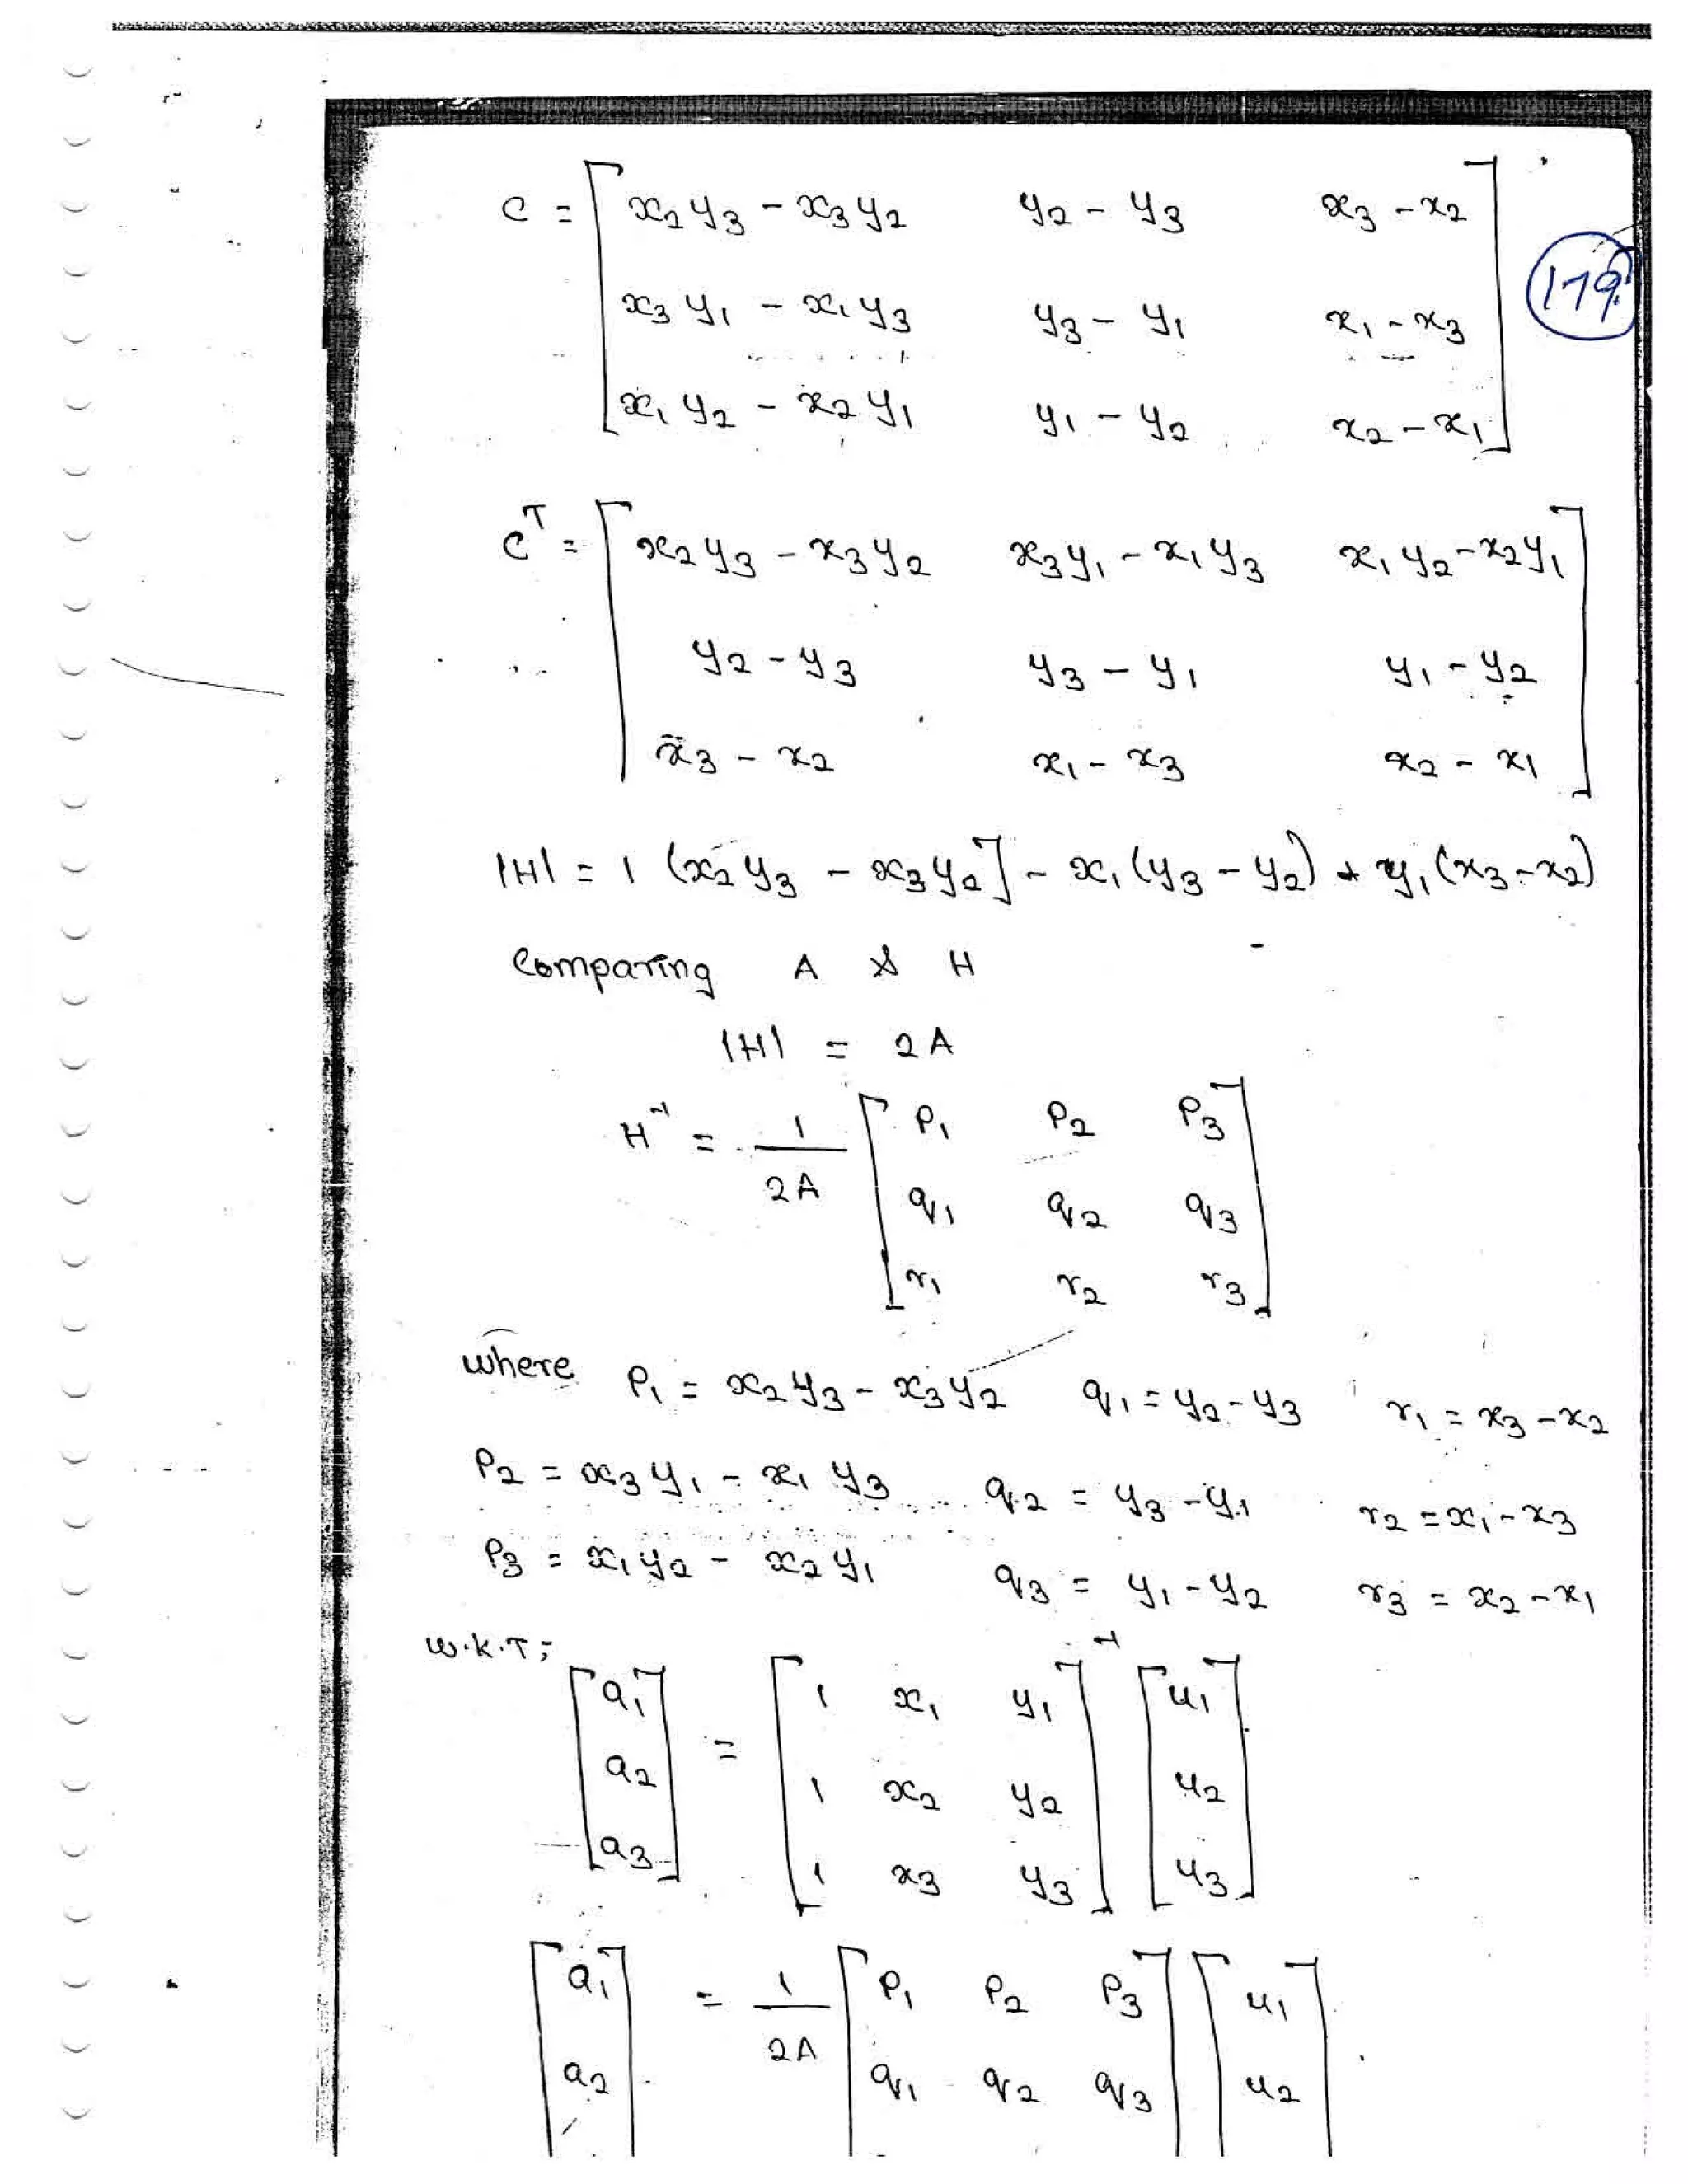 C = [ x₂y₃ - x₃y₂   y₂ - y₃   x₃ - x₂
x₃y₁ - x₁y₃   y₃ - y₁   x₁ - x₃
x₁y₂ - x₂y₁   y₁ - y₂   x₂ - x₁ ]
179
Cᵀ = [ x₂y₃ - x₃y₂   x₃y₁ - x₁y₃   x₁y₂ - x₂y₁
y₂ - y₃   y₃ - y₁   y₁ - y₂
x₃ - x₂   x₁ - x₃   x₂ - x₁ ]
|H| = 1 (x₂y₃ - x₃y₂] - x₁(y₃ - y₂) + y₁(x₃ - x₂)
Comparing A & H
|H| = 2A
H⁻¹ = 1/2A [ P₁   P₂   P₃
q₁   q₂   q₃
r₁   r₂   r₃ ]
where P₁ = x₂y₃ - x₃y₂   q₁ = y₂ - y₃   r₁ = x₃ - x₂
P₂ = x₃y₁ - x₁y₃   q₂ = y₃ - y₁   r₂ = x₁ - x₃
P₃ = x₁y₂ - x₂y₁   q₃ = y₁ - y₂   r₃ = x₂ - x₁
w.k.T;
[ a₁   = [ 1   x₁   y₁ ]⁻¹ [ u₁
a₂   1   x₂   y₂   u₂
a₃ ]   1   x₃   y₃   u₃ ]
[ a₁ ] = 1/2A [ P₁   P₂   P₃ ] [ u₁ ]
a₂   q₁   q₂   q₃   u₂